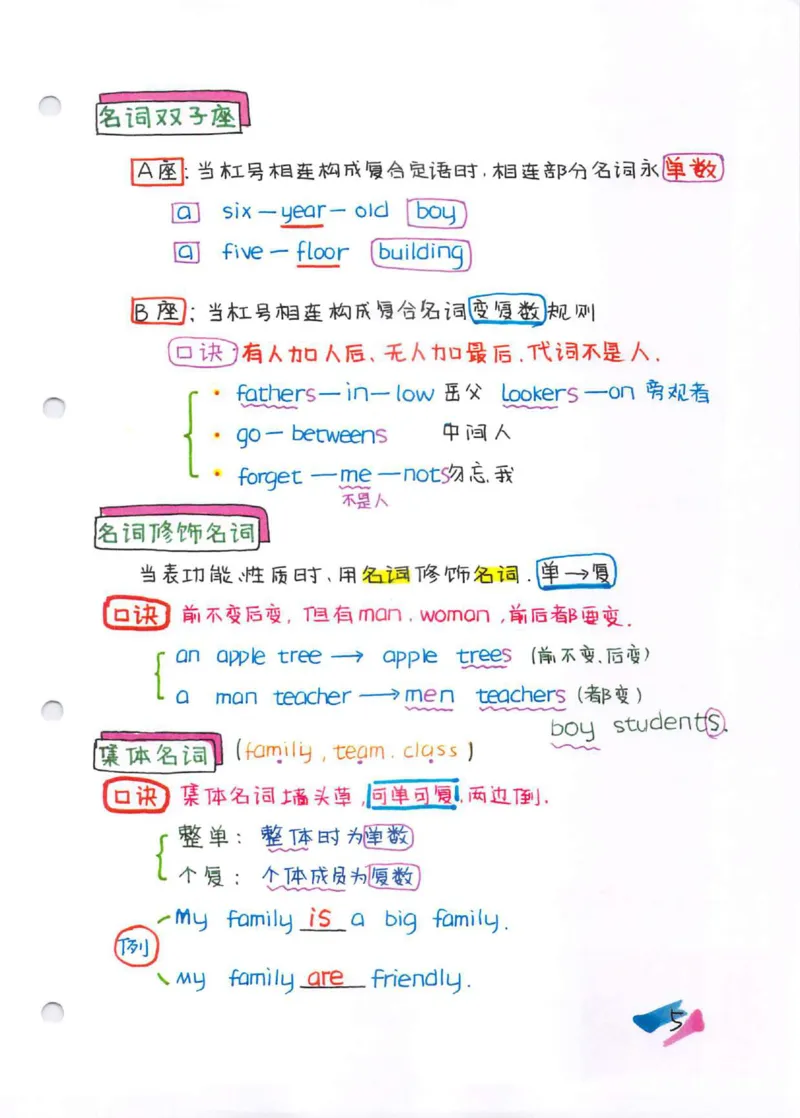 名词双子座
A座:当杠号相连构成复合定语时,相连部分名词永单数
a six—year—old boy
a five—floor building
B座:当杠号相连构成复合名词变复数规则
口诀:有人加人后、无人加最后,代词不是人.
• fathers—in—low 岳父 lookers—on 旁观者
• go—betweens 中间人
• forget—me—nots勿忘我
不是人
名词修饰名词
当表功能、性质时、用名词修饰名词.单→复
口诀 前不变后变,但有man、woman,前后都要变.
an apple tree → apple trees (前不变、后变)
a man teacher → men teachers (都变)
boy students.
集体名词 (family, team. class)
口诀 集体名词墙头草,可单可复,两边倒.
整单: 整体时为单数
个复: 个体成员为复数
例
My family is a big family.
My family are friendly.
5